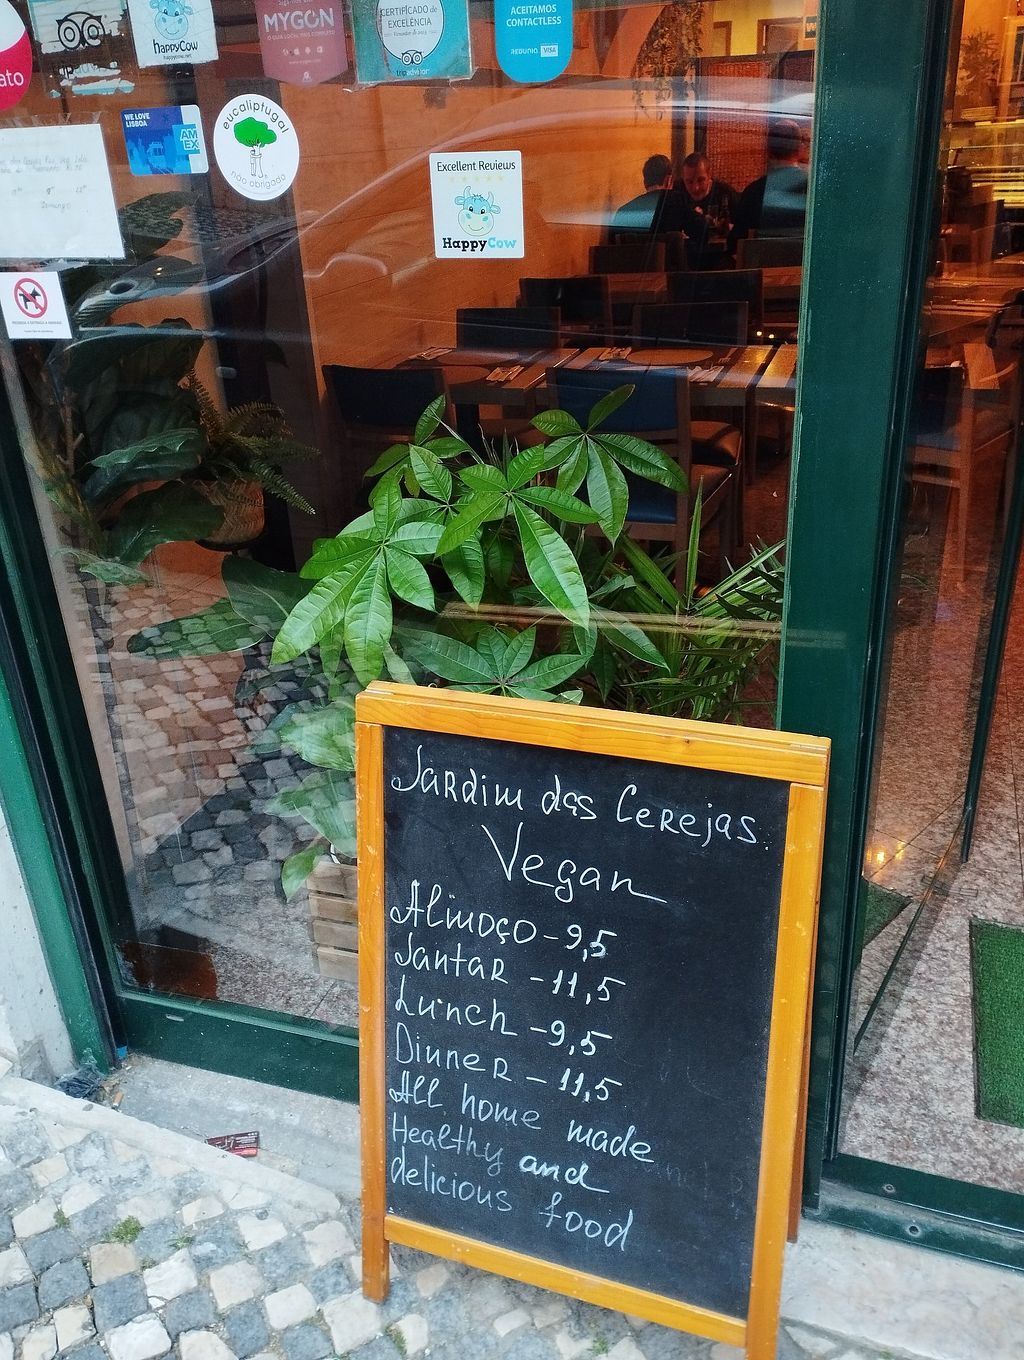 happyCow
happycow.net
MYGON
CERTIFICADO de
EXCELÊNCIA
tripadvisor
ACEITAMOS
CONTACTLESS
REDUNIQ VISA
ato
WE LOVE
LISBOA
AM
EX
eucaliptugal
não obrigado
Excellent Reviews
HappyCow
Domingo
Jardim das Cerejas
Vegan
Almoço - 9,5
Jantar - 11,5
Lunch - 9,5
Dinner - 11,5
All home made
Healthy and
delicious food